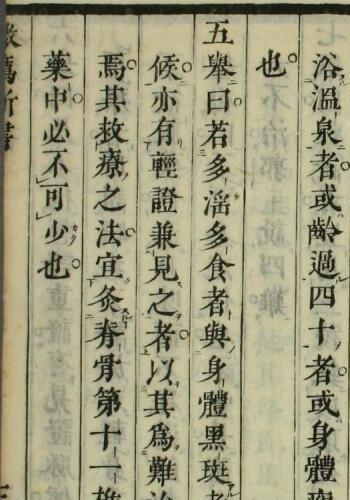 浴溫泉者或齡過四十者或身體
也
五擧曰若多淫多食者與身體黑斑
候亦有輕證兼見之者以其爲難治
焉其救療之法宜灸脊骨第十一椎
藥中必不可少也